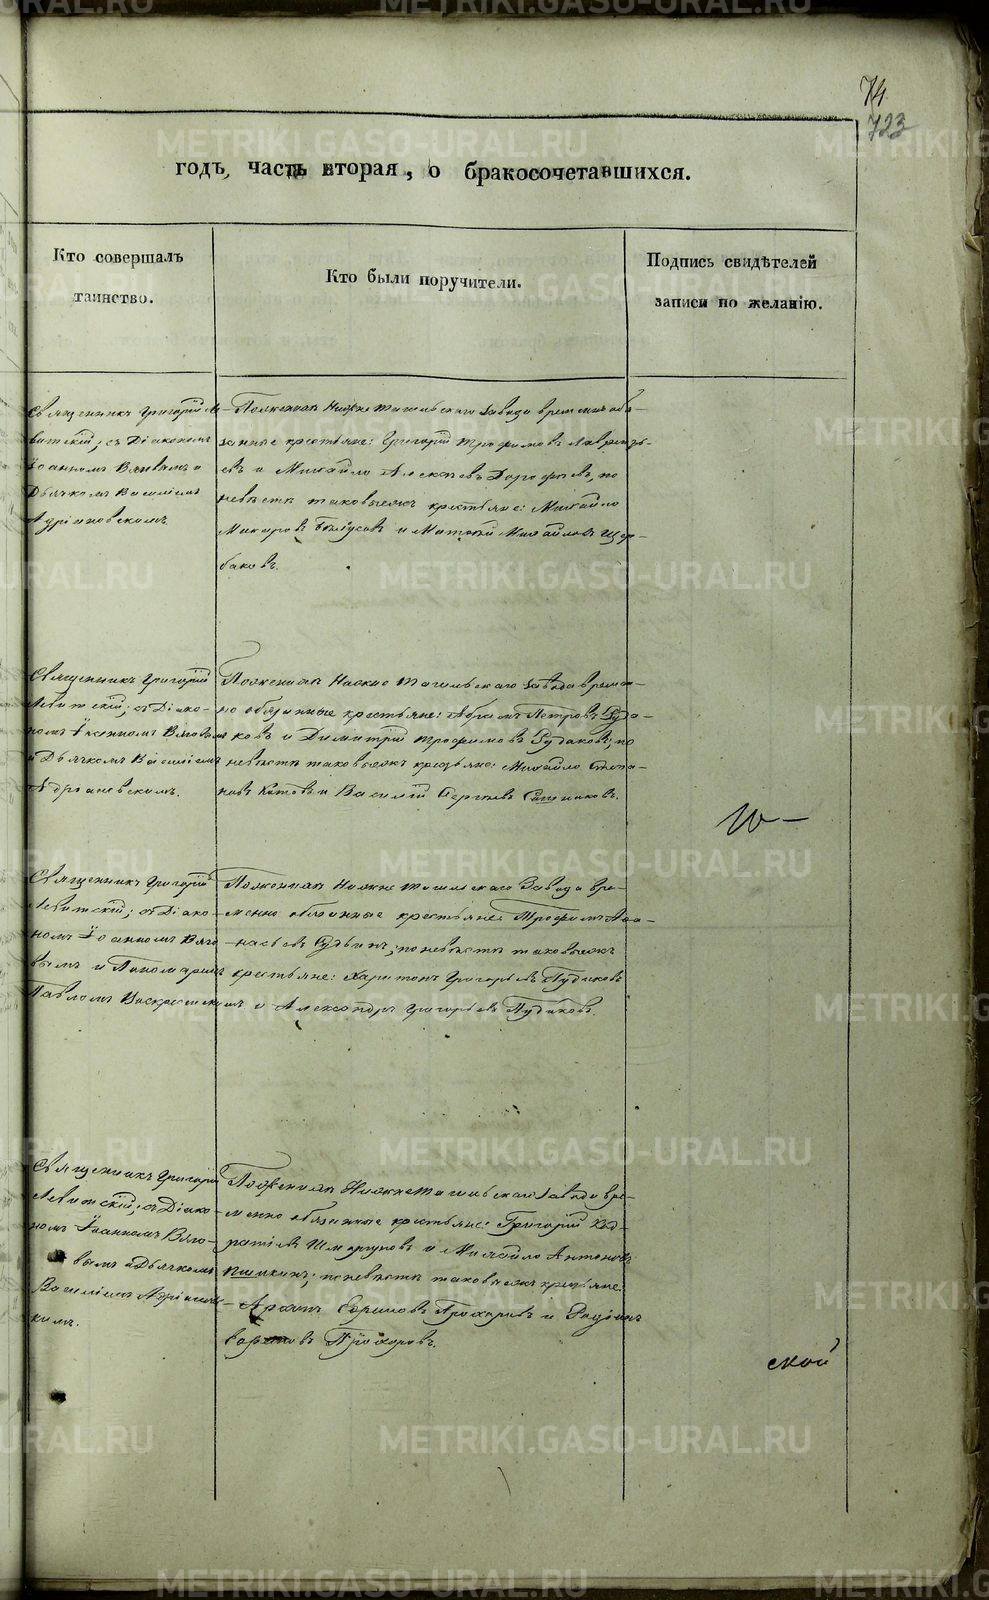 74
723
годъ, часть вторая, о бракосочетавшихся.
Кто совершалъ
таинство.
Кто были поручители.
Подпись свидѣтелей
записи по желанію.
Священникъ Григорій Ле-
витскій; съ Діакономъ
Іоанномъ Вяловымъ и
Дьячкомъ Василіемъ
Адріановскимъ.
По женихѣ Нижнетагильскаго завода временнообя-
занные крестьяне: Григорій Трофимовъ Лаврентье-
въ и Михайло Алексѣевъ Дорофѣевъ, по
невѣстѣ таковыежъ крестьяне: Михайло
Макаровъ и Матвѣй Михайловъ Щер-
баковъ.
Священникъ Григорій
Левитскій; съ Діако-
номъ Іоанномъ
и Дьячкомъ Василіемъ
Адріановскимъ.
По женихѣ Нижнетагильскаго завода времен-
но обязанные крестьяне: Абрамъ Петровъ Руда-
ковъ и Димитрій Трофимовъ Рудаковъ; по
невѣстѣ таковыежъ крестьяне: Михайло Степа-
новъ Котовъ и Василій Сергѣевъ
Священникъ Григорій
Левитскій; съ Діако-
номъ Іоанномъ Вяло-
вымъ и Пономаремъ
Павломъ Воскресенскимъ
По женихѣ Нижнетагильскаго Завода вре-
менно обязанные крестьяне: Трофимъ Афа-
насьевъ по невѣстѣ таковыежъ
крестьяне: Харитонъ Григорьевъ Пудиковъ
и Александръ Григорьевъ Пудиковъ.
Священникъ Григорій
Левитскій; съ Діако-
номъ Іоанномъ Вяло-
вымъ и Дьячкомъ
Василіемъ Адріановс-
кимъ.
По женихѣ Нижнетагильскаго завода вре-
менно обязанные крестьяне: Григорій Код-
ратіевъ и Михайло Антоновъ
по невѣстѣ таковыежъ крестьяне:
Архипъ Прохоровъ и Родіонъ
Прохоровъ.
ской
METRIKI.GASO-URAL.RU